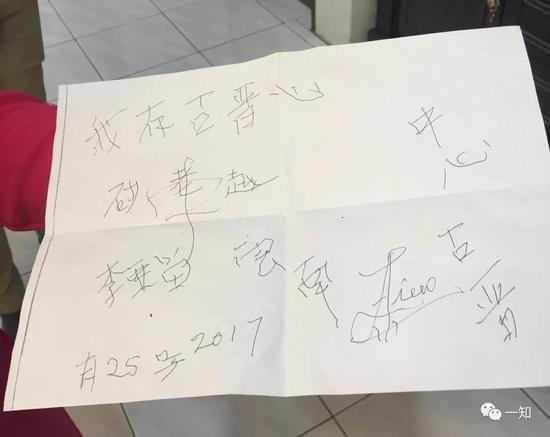 我在古晋心
中心
砂 华 越
李亚留
古晋
月25号2017
一知